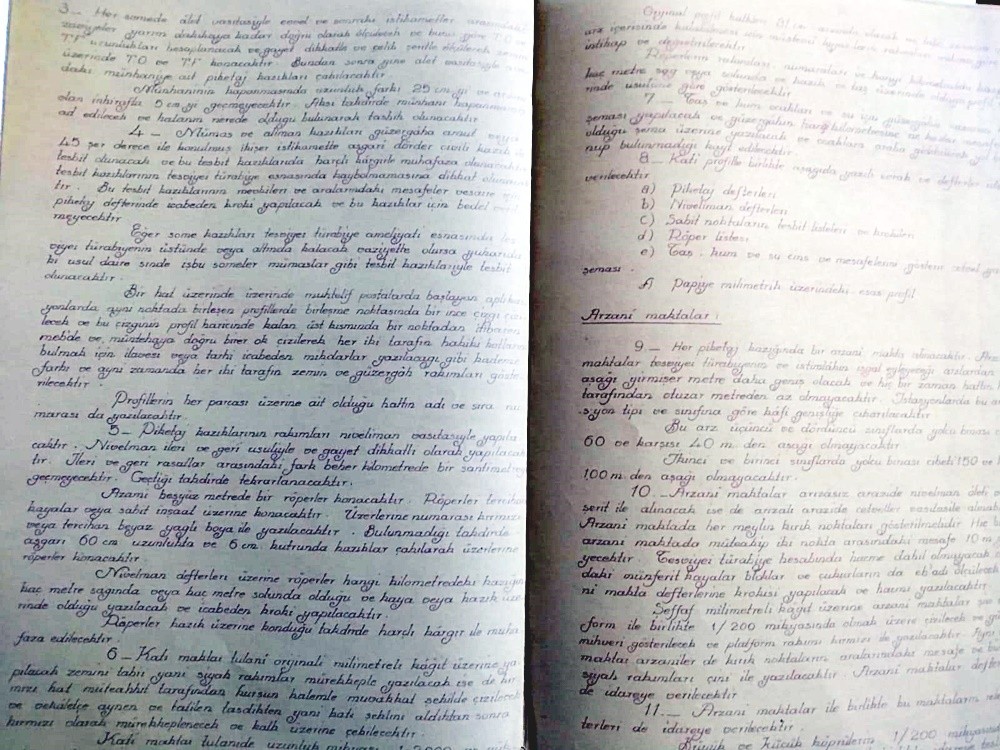 3 — Her somede âlet vasıtasiyle evvel ve sonraki istikametler arasındaki
zaviyeler yarım dakikaya kadar doğru olarak ölçülecek ve buna göre T O ve
T F uzunlukları hesaplanacak ve gayet dikkatle ve çelik şeritle ölçülerek
üzerinde T O ve T F konacaktır. Bundan sonra yine alet vasıtasiyle
daki münhaniye ait piketaj kazıkları çakılacaktır.
Münhaninin kapanmasında uzunluk farkı 25 cm. yi ve
olan inhirafla 5 cm yi geçmeyecektir. Aksi takdirde münhani kapanmamış
ad edilecek ve hatanın nerede olduğu bulunarak tashih olunacaktır.
4 — Mümas ve aliman kazıkları güzergâha amut veya
45 şer derece ile konulmuş ikişer istikamette asgari dörder civili kazıkla
tesbit olunacak ve bu tesbit kazıklarıda harçlı kârgirle muhafaza olunacaktır
tesbit kazıklarının tesviyei türabiye esnasında kaybolmamasına dikkat
tır. Bu tesbit kazıklarının mevkileri ve aralarındaki mesafeler vesaire
piketaj defterinde icabeden kroki yapılacak ve bu kazıklar için bedel
meyecektir
Eğer some kazıkları tesviyei türabiye ameliyatı esnasında
viyei türabiyenin üstünde veya altında kalacak vaziyette olursa yukarıda
ki usul daire sinde işbu someler mümaslar gibi tesbit kazıklariyle tesbit
olunacaktır.
Bir hat üzerinde üzerinde muhtelif postalarda başlayan
yonlarda aynı noktada birleşen profillerde birleşme noktasında bir ince çizgi
lecek ve bu çizginin profil haricinde kalan üst kısmında bir noktadan itibaren
mebde ve müntehaya doğru birer ok çizilerek her iki tarafın hakiki kotlarını
bulmak için ilavesi veya tarhı icabeden mikdarlar yazılacağı gibi
farkı ve aynı zamanda her iki tarafın zemin ve güzergâh rakımları göste
rilecektir
Profillerin her parçası üzerine ait olduğu hattın adı ve sıra nu
marası da yazılacaktır.
5 — Piketaj kazıklarının rakımları niveliman vasıtasiyle yapıla
caktır. Nivelman ileri ve geri usuliyle ve gayet dikkatli olarak yapılacak
tır. İleri ve geri rasatlar arasındaki fark beher kilometrede bir santimetreyi
geçmeyecektir. Geçtiği takdirde tekrarlanacaktır.
Azami beşyüz metrede bir röperler konacaktır. Röperler tercihan
kayalar veya sabit inşaat üzerine konacaktır. Üzerlerine numarası kırmızı
veya tercihan beyaz yağlı boya ile yazılacaktır. Bulunmadığı takdirde
asgari 60 cm. uzunlukta ve 6 cm. kutrunda kazıklar çakılarak üzerlerine
röperler konacaktır.
Nivelman defterleri üzerine röperler hangi kilometredeki kazığın
kaç metre sağında veya kaç metre solunda olduğu ve kaya veya kazık üze
rinde olduğu yazılacak ve icabeden kroki yapılacaktır.
Röperler kazık üzerine konduğu takdirde harçlı kârgir ile muha
faza edilecektir.
6 — Kati maktaı tulanî orijinali milimetreli kâğıt üzerine ya
pılacak zemini tabiî yani siyah rakımlar mürekkeple yazılacak ise de kır
mızı hat müteahhit tarafından kurşun kalemle muvakkat şekilde çizilecek
ve vekâletçe aynen ve tadilen tasdikten yani kati şeklini aldıktan sonra
kırmızı olarak mürekkeplenecek ve kalk üzerine çekilecektir.
Kati maktaı tulanide uzunluk mikyası 1/2000
Orijinal profil
arz içerisinde
intihap ve değiştirilecektir
Röperlerin rakımları, numaraları ve hangi kilometredeki
kaç metre sağ veya solunda ve kazık ve taş üzerinde olduğu
rinde usulüne göre gösterilecektir
7 — Taş ve kum ocakları ve su
şeması yapılacak ve güzergâhın hangi kilometresine ne kadar
olduğu şema üzerine yazılacak ve ocaklara araba
nup bulunmadığı kayıt edilecektir.
8 — Kati profille birlikte aşağıda yazılı evrak ve defterler
verilecektir
a) Piketaj defterleri
b) Niveliman defterleri
c) Sabit noktaların tesbit listeleri ve krokileri
d) Röper listesi
e) Taş, kum ve su cins ve mesafelerini gösterir
şeması.
f) Papiye milimetrik üzerindeki esas profil
Arzanî maktalar:
9 — Her piketaj kazığında bir arzani makta alınacaktır.
maktalar tesviyei türabiyenin ve istimlâkin işgal eyleyeceği arazilerden
aşağı yirmişer metre daha geniş olacak ve hiç bir zaman hattın
tarafından otuzar metreden az olmayacaktır. İstasyonlarda bu
s yon tipi ve sınıfına göre kâfi genişliğe çıkarılacaktır
Bu arz üçüncü ve dördüncü sınıflarda yolcu binası
60 ve karşısı 40 m. den aşağı olmayacaktır
İkinci ve birinci sınıflarda yolcu binası ciheti 150 ve
100 m. den aşağı olmayacaktır.
10 — Arzanî maktalar arızasız arazide nivelman âleti
şerit ile alınacak ise de arızalı arazide vasıtasile
Arzanî maktada her meylin kırık noktaları gösterilmelidir Hiç bir
arzani maktada müteakip iki nokta arasındaki mesafe 10 m
yecektir. Tesviyei türabiye hesabında hacme dahil olmayacak
daki münferit kayalar bloklar ve çukurların da eb'adı ölçülecek
ni makta defterlerine krokisi yapılacak ve hacmi yazılacaktır.
Şeffaf milimetreli kâğıt üzerine arzani maktalar
form ile birlikte 1/200 mikyasında olmak üzere çizilecek ve
mihveri gösterilecek ve platform rakımı kırmızı ile yazılacaktır.
maktaı arzaniler de kırık noktaların aralarındaki mesafe ve
siyah rakımları çini ile yazılacaktır. Arzanî maktalar
de idareye verilecektir
11 — Arzanî maktalar ile birlikte bu maktaların
terleri de idareye verilecektir.
Büyük ve küçük köprülerin 1/200